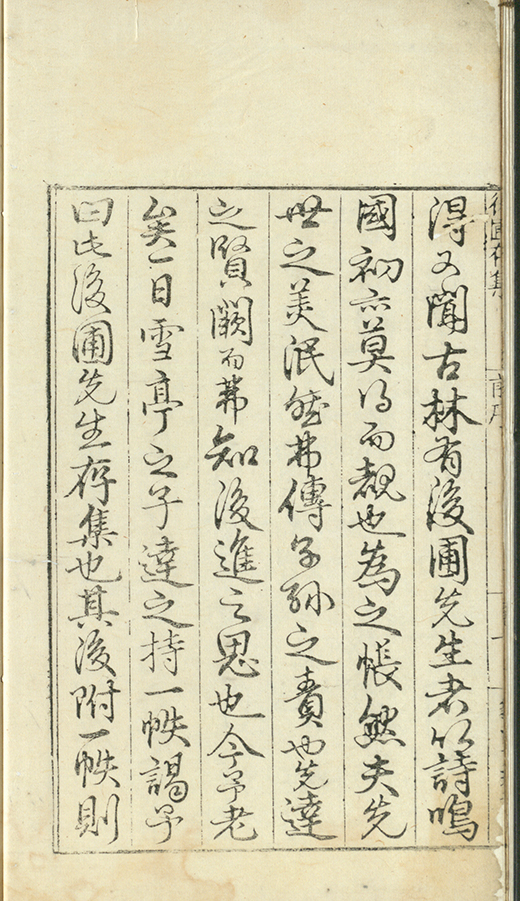 得又聞古林有後圃先生者以詩鳴
國初亦莫得而覩也為之悵然夫先
世之美泯然弗傳子孫之責也先達
之賢闕而弗知後進之思也今予老
矣一日雪亭之子達之持一帙謁予
曰此後圃先生存集也其後附一帙則